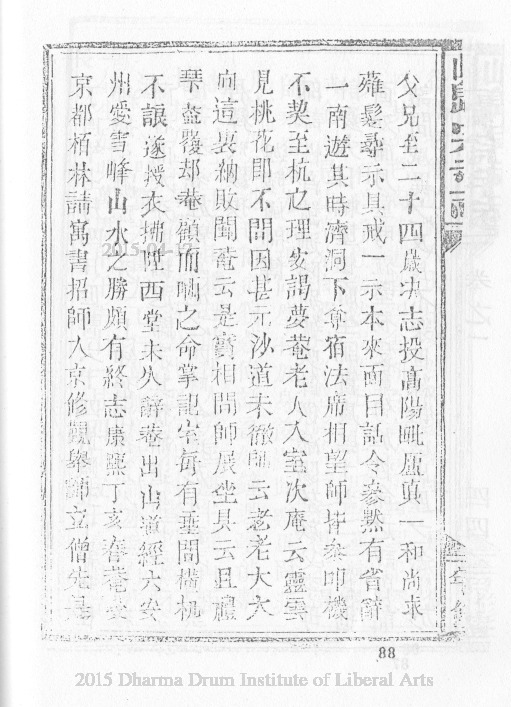 父兄至二十四歲決志投高陽毗盧真一和尚求
薙髮尋示具戒一示本來面目話令參然有省辭
一南遊其時濟洞下尊宿法席相望師皆參叩機
不契至杭之理安謁夢菴老人入室次庵云靈雲
見桃花即不問因甚元沙道未徹師云老老大大
向這裏納敗闕菴云是實相問師展坐具云且禮
拜菴覆却菴顧而咄之命掌記室每有垂問機
不讓遂授衣拂陞西堂未久辭菴出山道經六安
州愛雪峰山水之勝頗有終志康熙丁亥春菴受
京都栢林請寓書招師入京修觀舉師立僧先是
2015-04-17
88
2015 Dharma Drum Institute of Liberal Arts